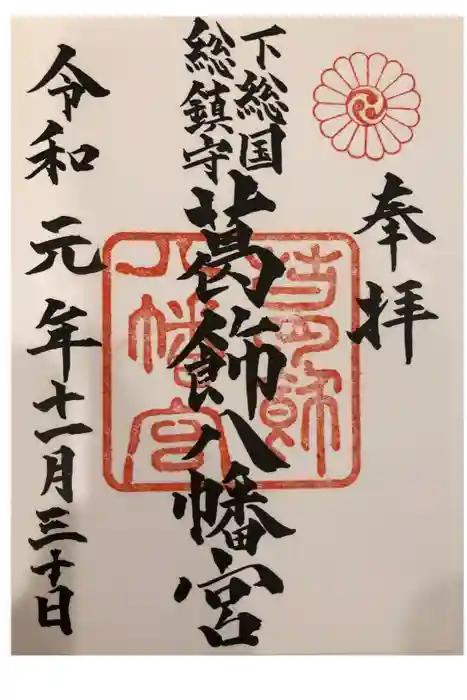 奉拝
下総国
総鎮守
葛飾八幡宮
葛飾
八幡宮
令和元年十一月三十日